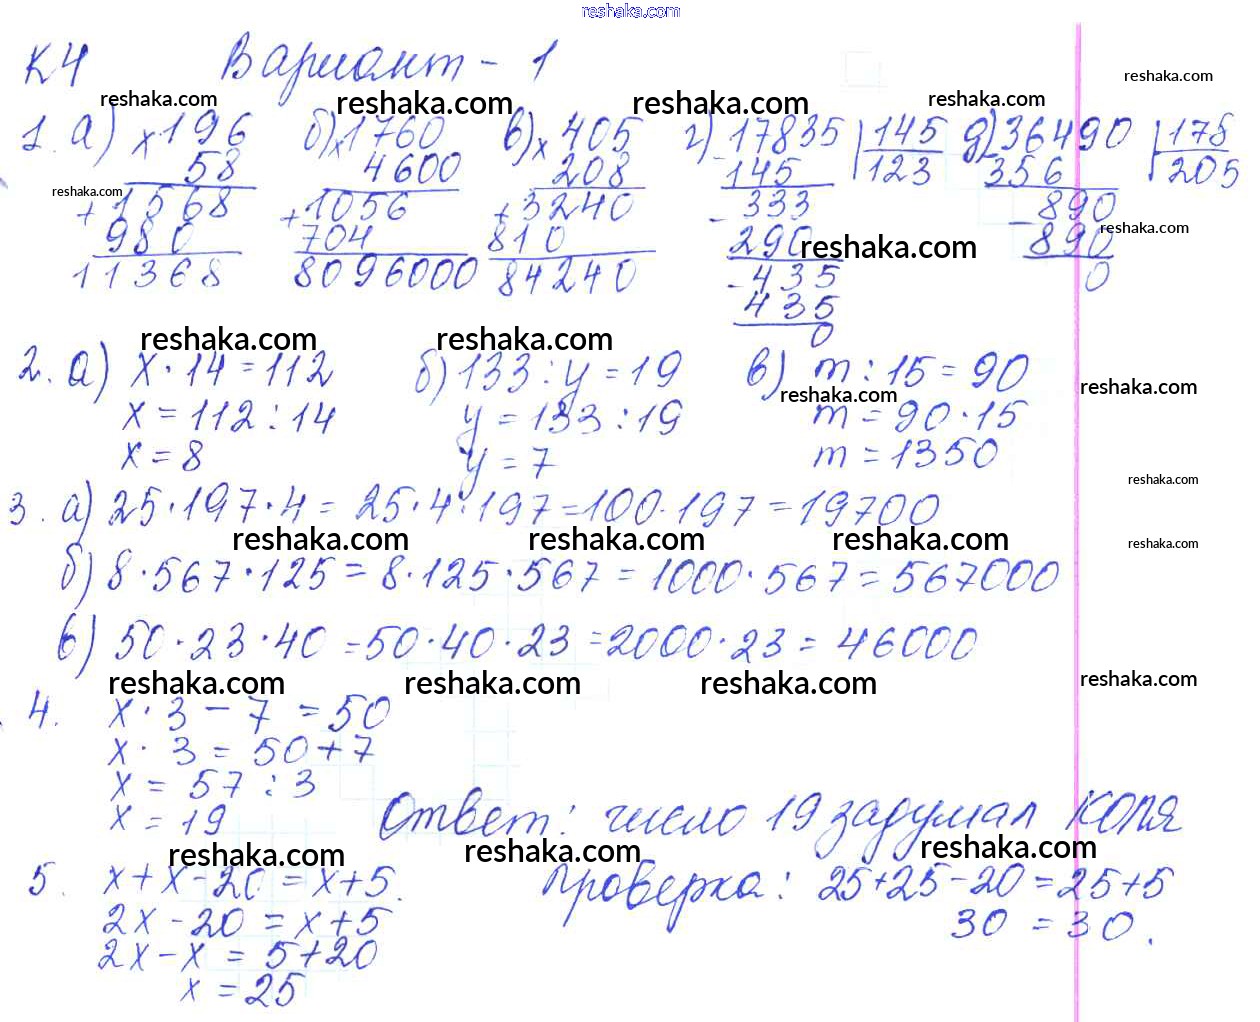 reshaka.com
К4 Вариант - 1
reshaka.com
reshaka.com reshaka.com reshaka.com reshaka.com
1. а) х 196 б) х 1760 в) х 405 г) 17835 | 145 д) 36490 | 178
58 4600 208 - 145 123 - 356 205
reshaka.com
+ 1568 + 1056 + 3240 - 333 890
980 704 810 290 - 890
reshaka.com reshaka.com
11368 8096000 84240 - 435 0
435
0
reshaka.com reshaka.com
2. а) х · 14 = 112 б) 133 : у = 19 в) m : 15 = 90
reshaka.com reshaka.com
х = 112 : 14 у = 133 : 19 m = 90 · 15
х = 8 у = 7 m = 1350
reshaka.com
3. а) 25 · 197 · 4 = 25 · 4 · 197 = 100 · 197 = 19700
reshaka.com reshaka.com reshaka.com reshaka.com
б) 8 · 567 · 125 = 8 · 125 · 567 = 1000 · 567 = 567000
в) 50 · 23 · 40 = 50 · 40 · 23 = 2000 · 23 = 46000
reshaka.com reshaka.com reshaka.com reshaka.com
4. х · 3 - 7 = 50
х · 3 = 50 + 7
х = 57 : 3
х = 19 Ответ: число 19 задумал Коля
reshaka.com reshaka.com reshaka.com
5. х + х - 20 = х + 5. Проверка: 25 + 25 - 20 = 25 + 5
2х - 20 = х + 5 30 = 30.
2х - х = 5 + 20
х = 25